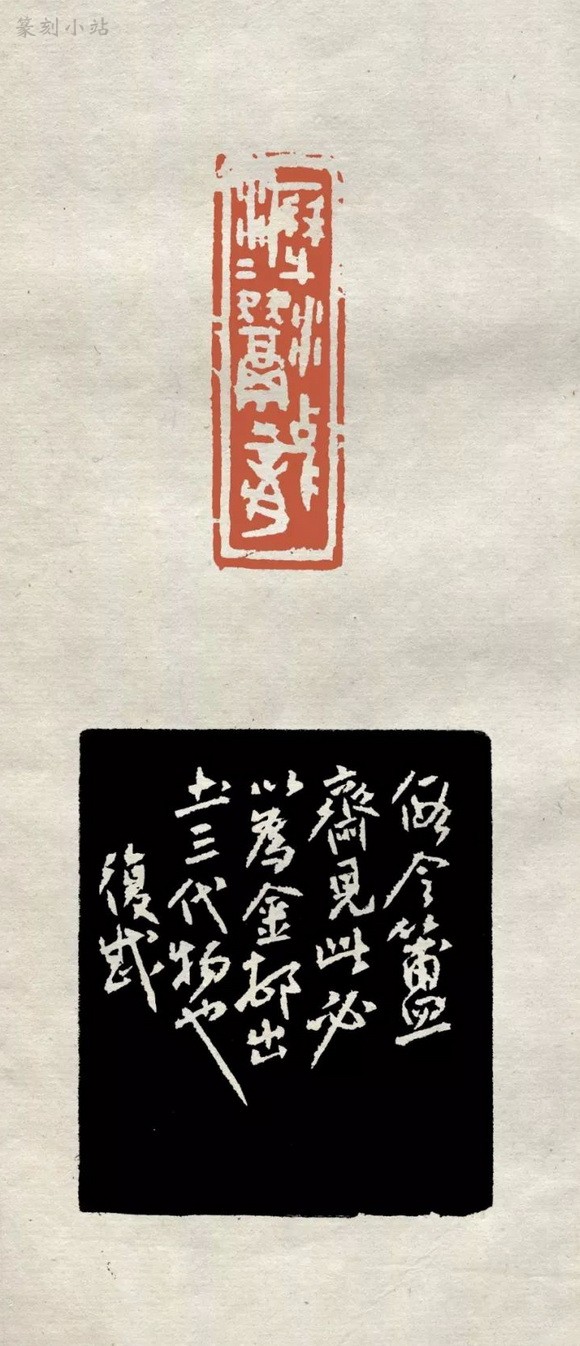 篆刻小站
假令簠
齋見此必
以為金邨出
土三代物也
復戡